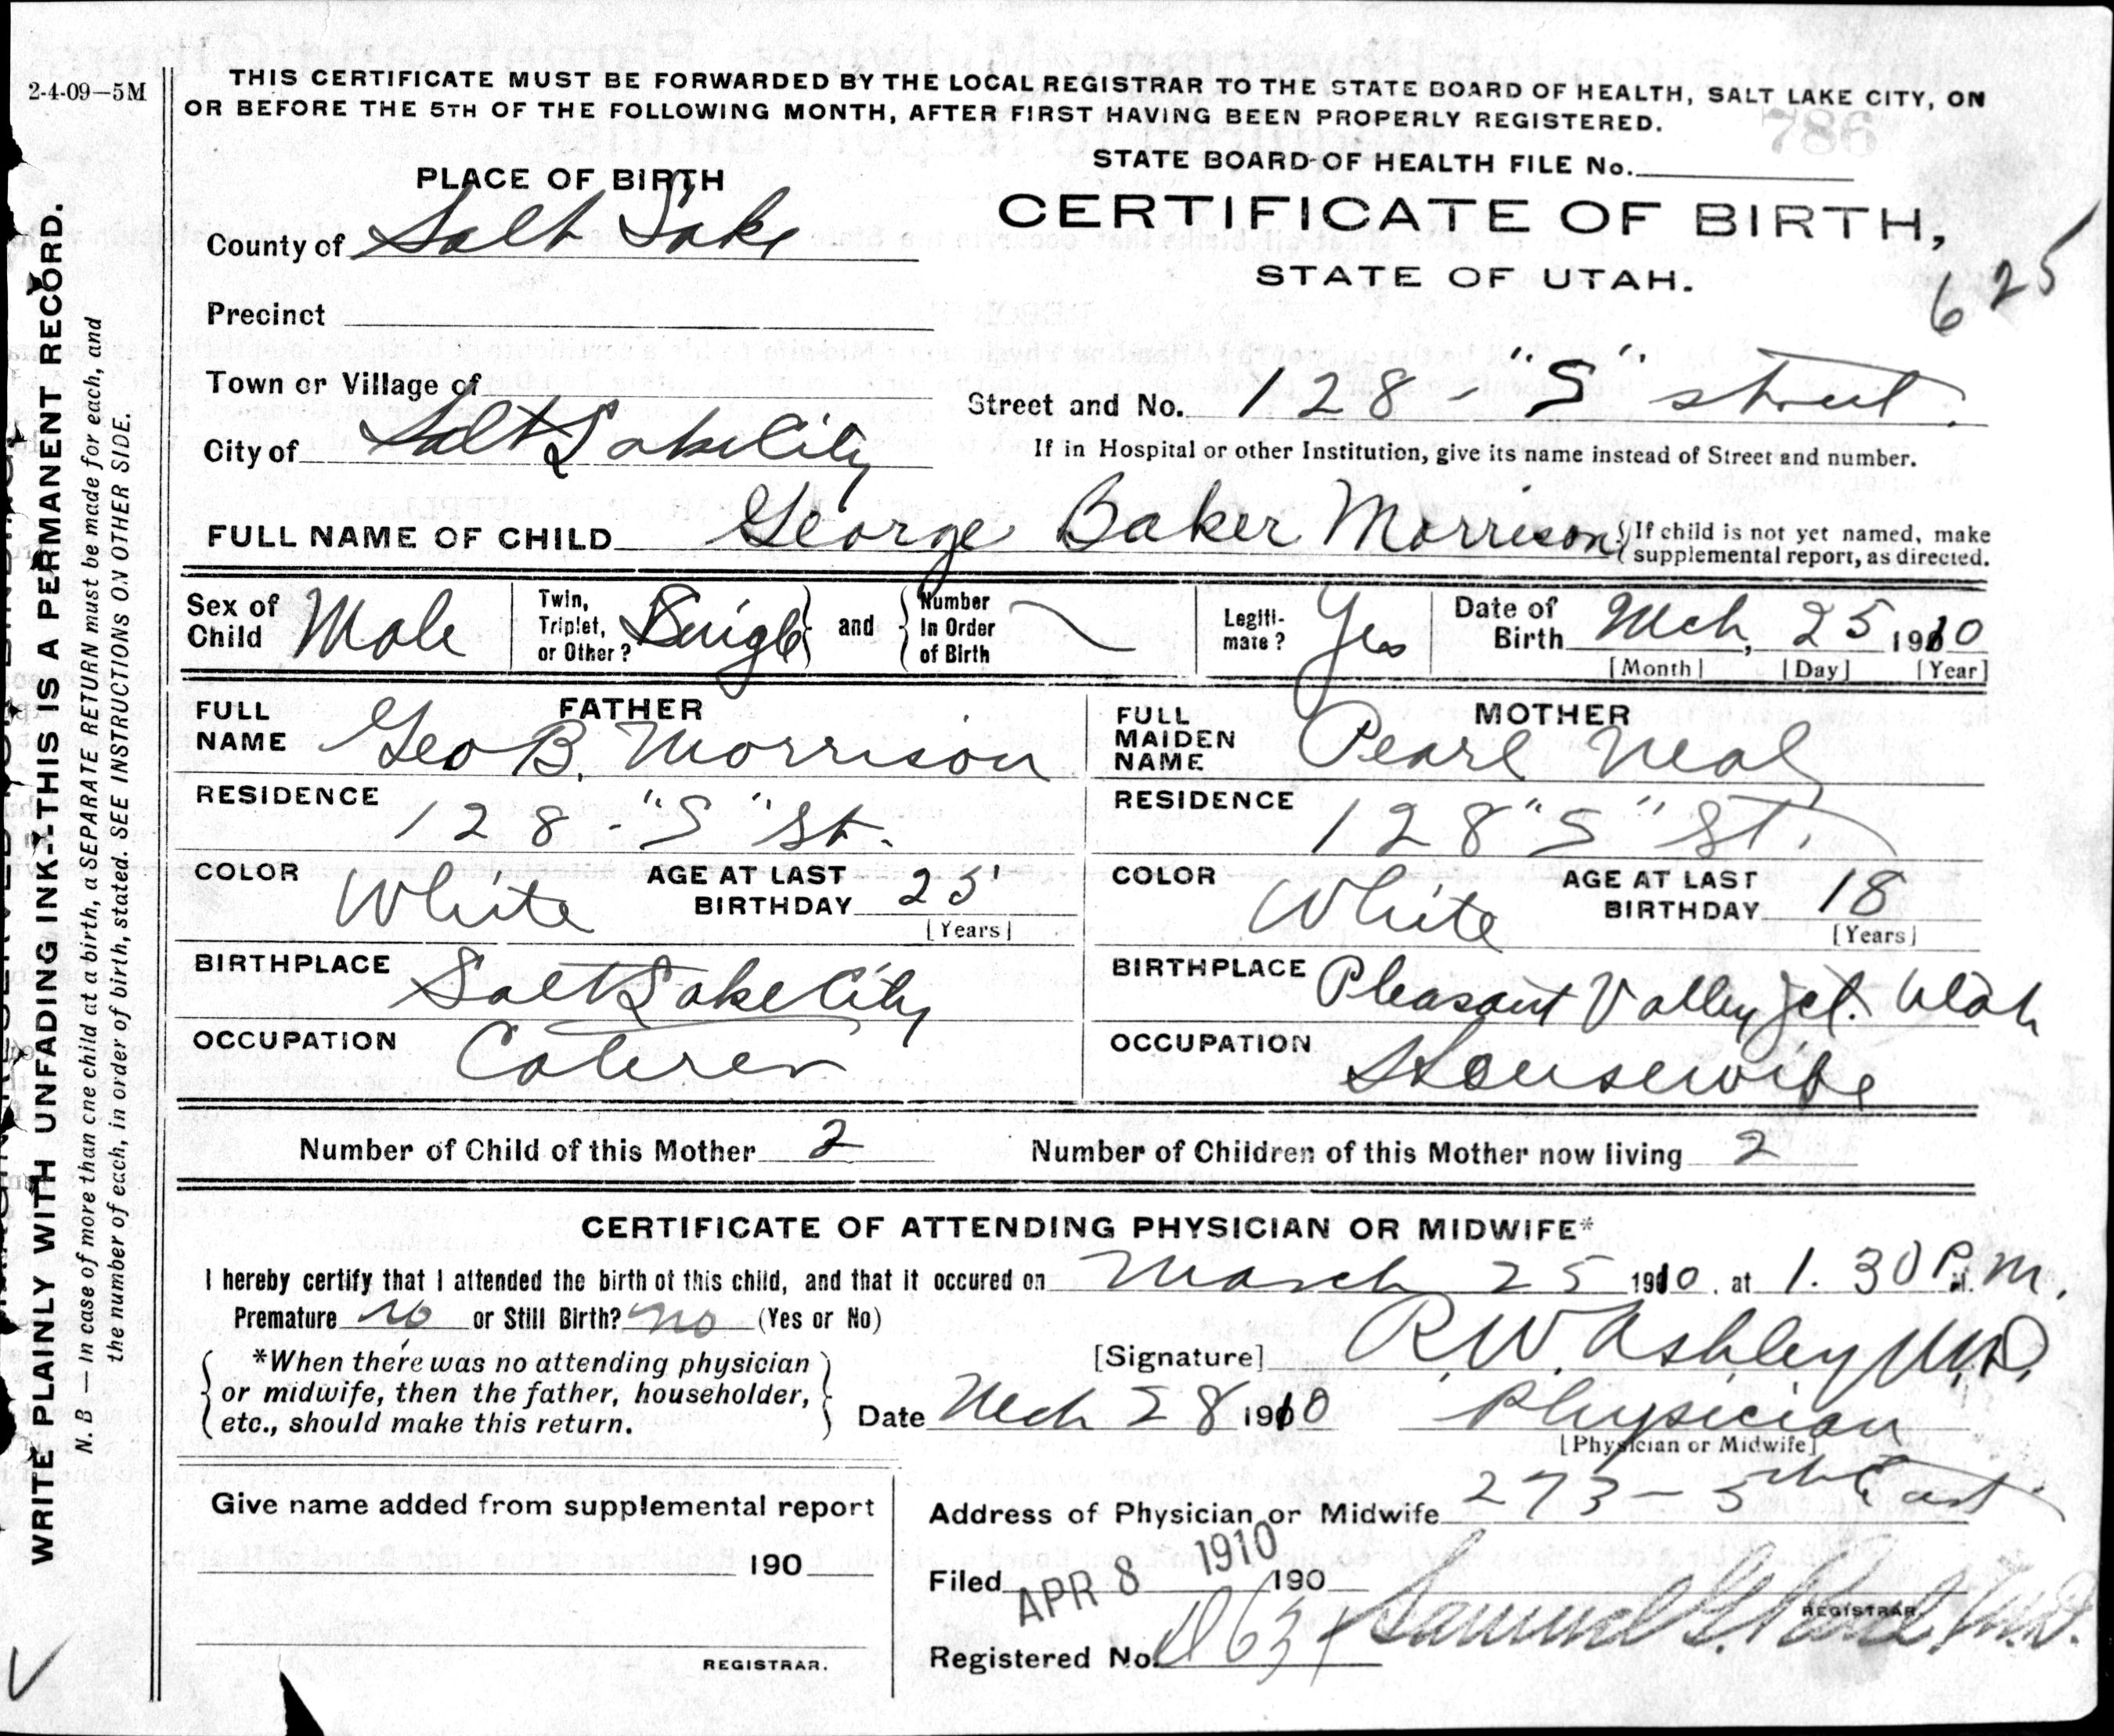 2-4-09—5M
THIS CERTIFICATE MUST BE FORWARDED BY THE LOCAL REGISTRAR TO THE STATE BOARD OF HEALTH, SALT LAKE CITY, ON
OR BEFORE THE 5TH OF THE FOLLOWING MONTH, AFTER FIRST HAVING BEEN PROPERLY REGISTERED.
786
STATE BOARD OF HEALTH FILE No.
PLACE OF BIRTH
CERTIFICATE OF BIRTH,
STATE OF UTAH.
625
County of Salt Lake
Precinct
Town or Village of
Street and No. 128 - "S" street
City of Salt Lake City
If in Hospital or other Institution, give its name instead of Street and number.
FULL NAME OF CHILD George Baker Morrison
If child is not yet named, make
supplemental report, as directed.
Sex of Child Male
Twin, Triplet, or Other? Single and Number In Order of Birth
Legiti-mate? Yes
Date of Birth Mch, 25 1910
[Month] [Day] [Year]
FATHER
FULL NAME Geo B. Morrison
MOTHER
FULL MAIDEN NAME Pearl Neal
RESIDENCE 128 - "S" St.
RESIDENCE 128 "S" St.
COLOR White AGE AT LAST BIRTHDAY 25 [Years]
COLOR White AGE AT LAST BIRTHDAY 18 [Years]
BIRTHPLACE Salt Lake City
BIRTHPLACE Pleasant Valley Jct. Utah
OCCUPATION Caterer
OCCUPATION Housewife
Number of Child of this Mother 2 Number of Children of this Mother now living 2
CERTIFICATE OF ATTENDING PHYSICIAN OR MIDWIFE*
I hereby certify that I attended the birth of this child, and that it occured on March 25 1910, at 1.30 P.M.
Premature no or Still Birth? no (Yes or No)
*When there was no attending physician
or midwife, then the father, householder,
etc., should make this return.
[Signature] R.W. Ashley M.D.
Date Mch 28 1910 Physician
[Physician or Midwife]
Give name added from supplemental report
190
REGISTRAR.
Address of Physician or Midwife 273 - 5th East
Filed APR 8 1910 190
Samuel G. M.D.
REGISTRAR.
Registered No.
WRITE PLAINLY WITH UNFADING INK--THIS IS A PERMANENT RECORD.
N. B — In case of more than one child at a birth, a SEPARATE RETURN must be made for each, and
the number of each, in order of birth, stated. SEE INSTRUCTIONS ON OTHER SIDE.